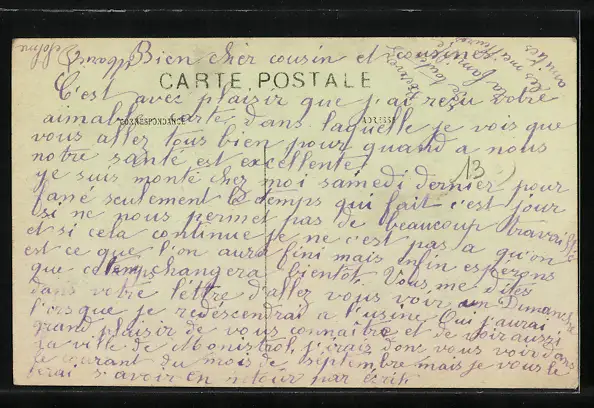 Bien cher cousin et cousines
CARTE POSTALE
C'est avec plaisir que j'ai reçu votre
CORRESPONDANCE
ADRESSE
aimable carte dans laquelle je vois que
vous allez tous bien pour quand a nous
notre santé est excellente 13
je suis monté chez moi samedi dernier pour
fané seulement le temps qui fait c'est jour
si ne nous permes pas de beaucoup travaillé
et si cela continue je ne c'est pas a qu'on
est ce que l'on aura fini mais enfin espérons
que ce temps changera bientôt, Vous me dites
dans votre l'ettre d'allez vous voir un Dimanche
l'orsque je redescendrai a l'usine. Oui j'aurai
grand plaisir de vous connaître et de voir aussi
la ville de Monistrol, j'irais donc vous voir dans
le courant du mois de septembre mais je vous le
ferai s'avoir en retour par écrit